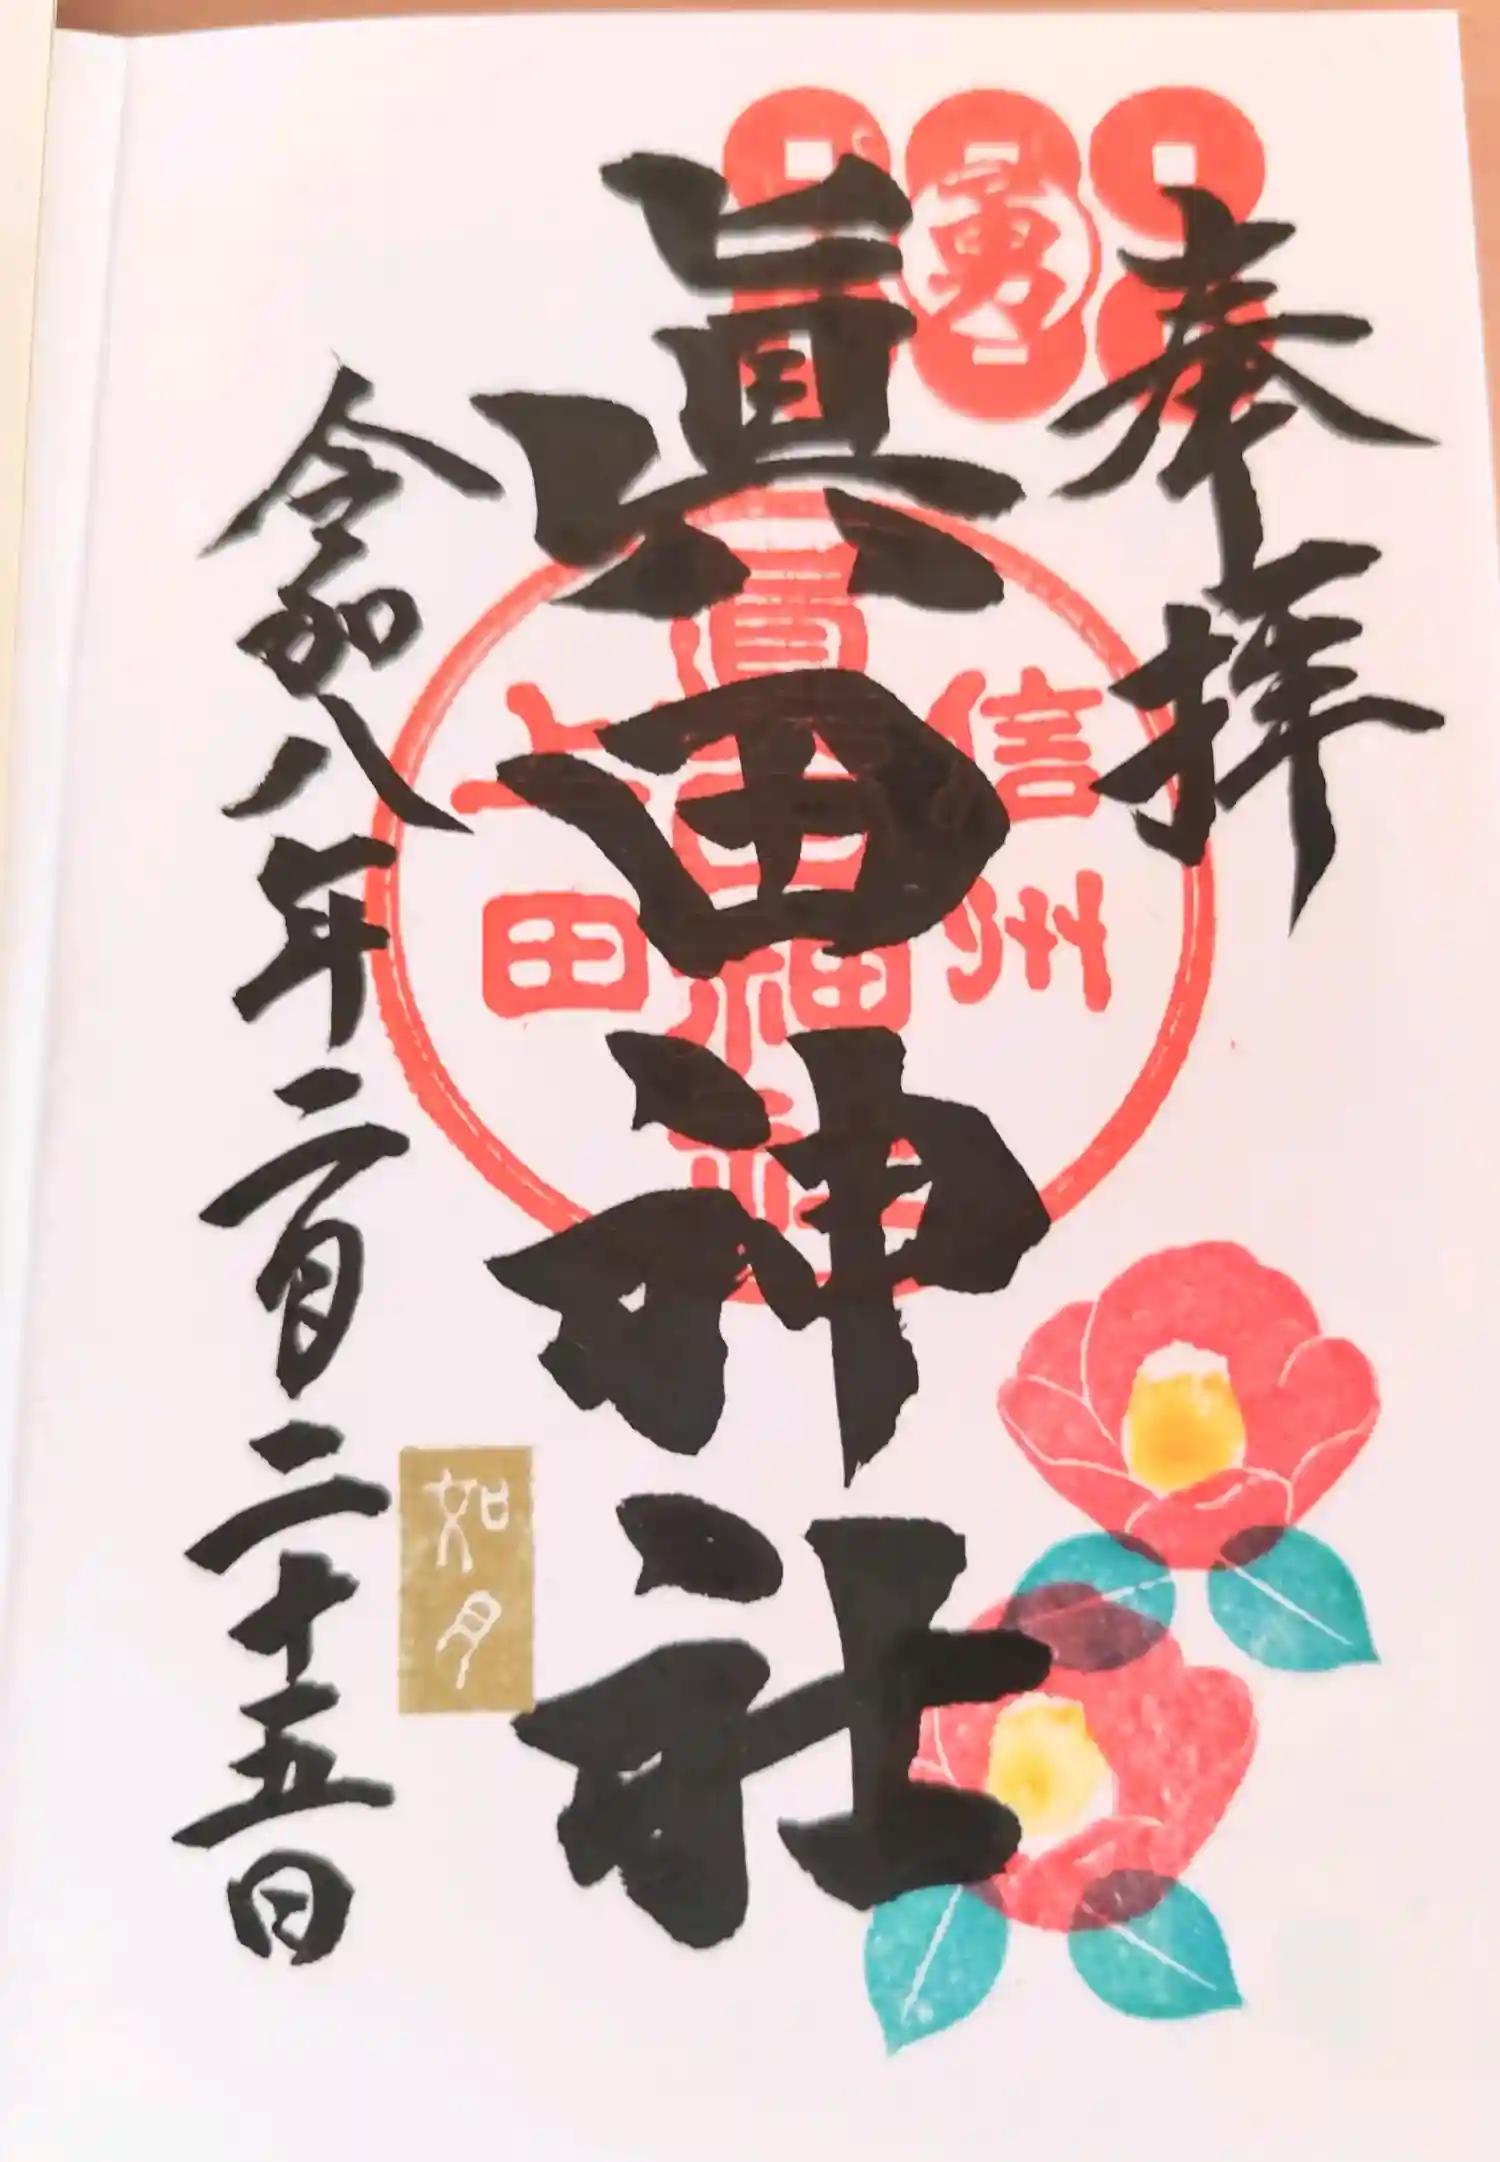 奉拝
勇
眞田神社
信州
上田
眞田神社
如月
令和八年二月二十五日